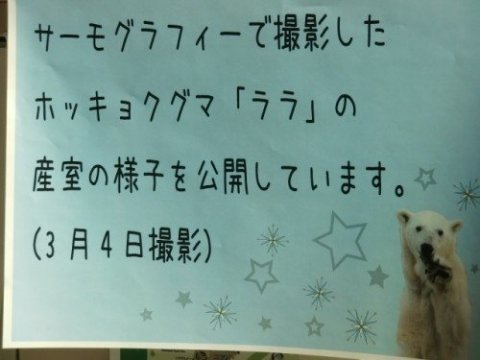 サーモグラフィーで撮影した
ホッキョクグマ「ララ」の
産室の様子を公開しています。
(3月4日撮影)